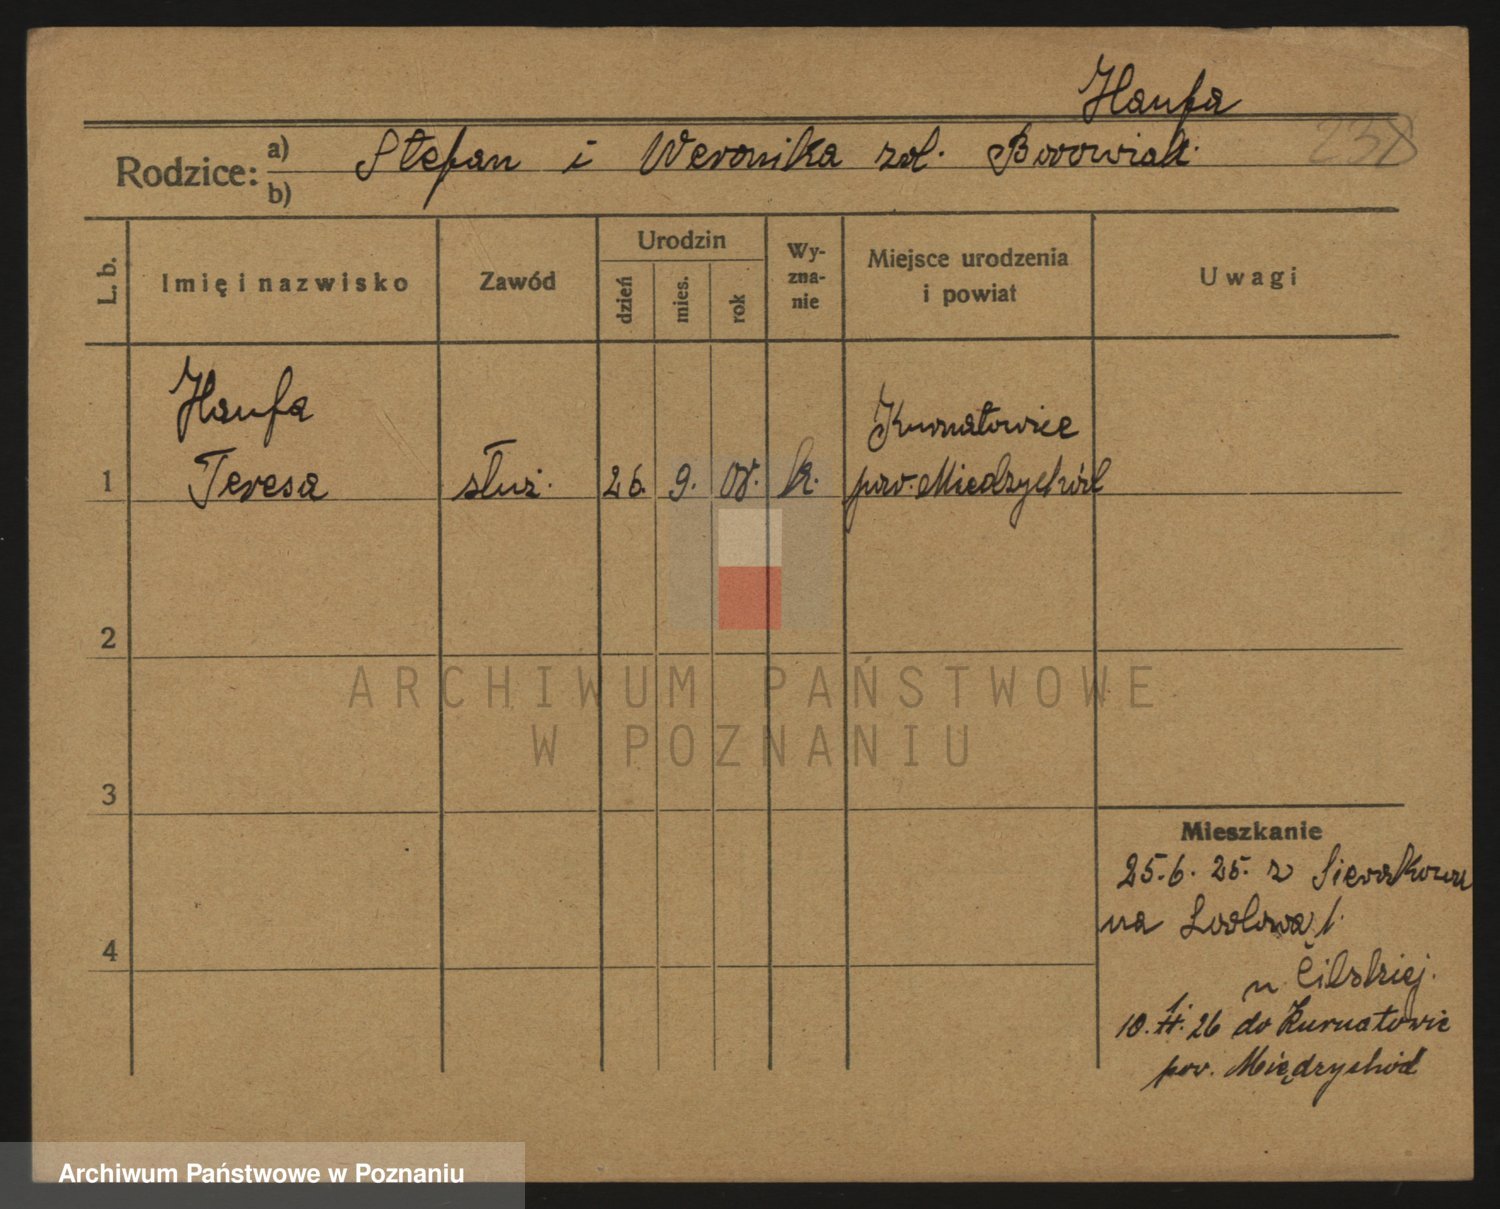 Haufa
238
Rodzice: a) Stefan i Weronika zd. Borowiak
b)
L. b. Imię i nazwisko Zawód Urodzin dzień mies. rok Wy-zna-nie Miejsce urodzenia i powiat Uwagi
Haufa Kurnatowice
1 Teresa służ. 26. 9. 08. k. pow. Międzychód
2
3
4
Mieszkanie
25.6. 25. z Sierakowa
na
u
10. 1. 26 do Kurnatowic
pow. Międzychód
ARCHIWUM PAŃSTWOWE
W POZNANIU
Archiwum Państwowe w Poznaniu